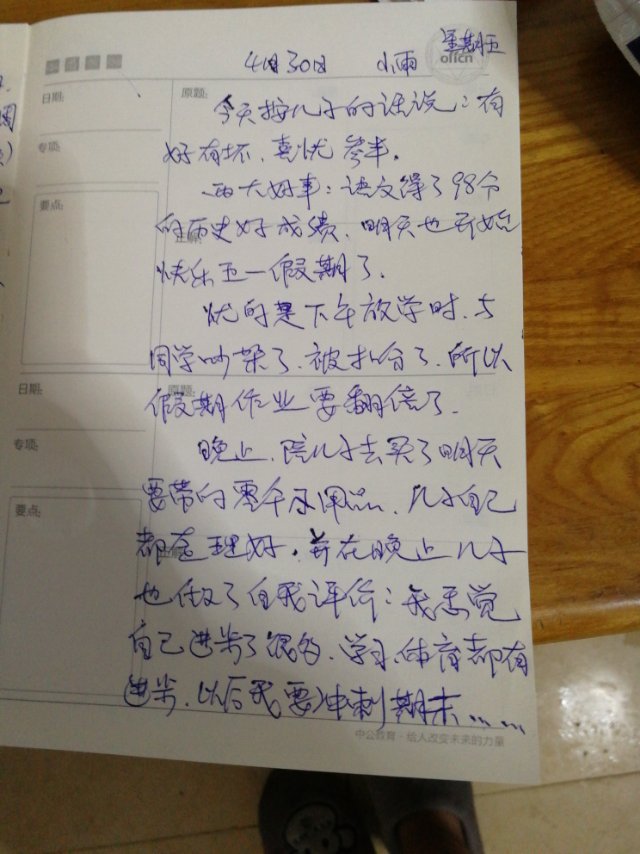 4月30日 小雨 星期五
offcn
日期:
原题:
今天按儿子的话说:有
好有坏、喜忧参半。
专项:
要点:
两大好事:语文得了98分
正解:
的历史好成绩、明天也开始
快乐五一假期了.
忧的是下午放学时、与
同学吵架了、被扣分了、所以
日期:
原题:
假期作业要翻倍了.
专项:
晚上、陪儿子去买了明天
要点:
要带的零午用品、儿子自己
正解:
都整理好。并在晚上儿子
也做了自我评价:我感觉
自己进步了很多、学习、体育都有
进步、以后我要冲刺期末……
中公教育·给人改变未来的力量